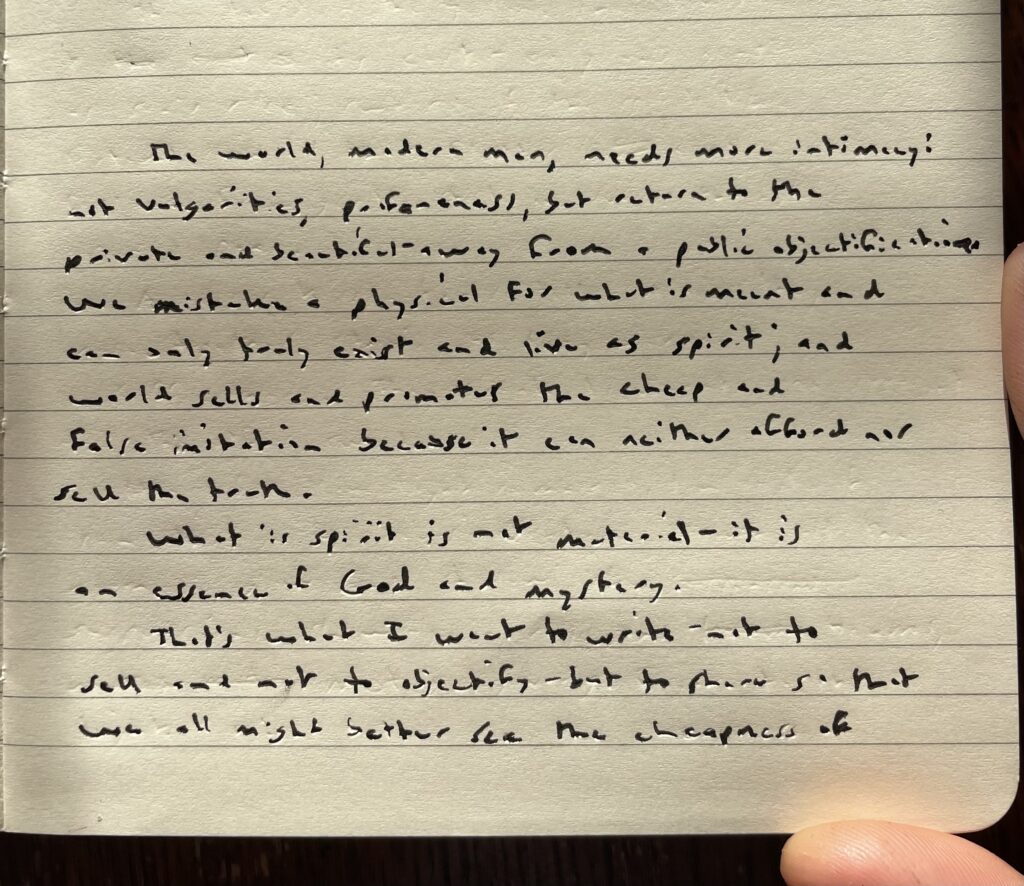 The world, modern man, needs more intimacy:
not vulgarities, profaneness, but return to the
private and beautiful - away from a public objectification.
We mistake a physical for what is meant and
can only truly exist and live as spirit; and
world sells and promotes the cheap and
false imitation because it can neither afford nor
sell the truth.
What is spirit is not material - it is
an essence of God and mystery.
That's what I want to write - not to
sell and not to objectify - but to share so that
we all might better see the cheapness of